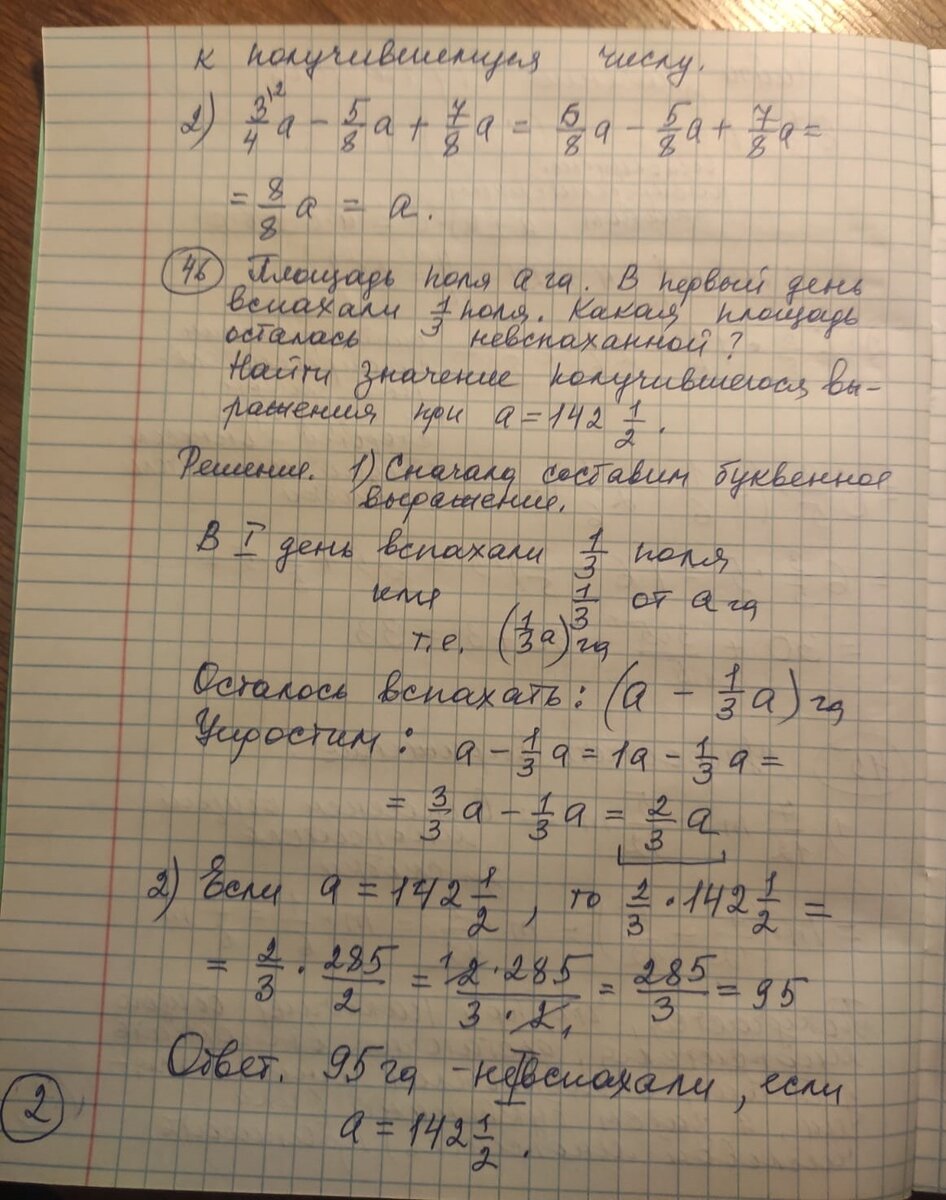 к получившемуся числу.
2) 3/4^{\2} a - 5/8 a + 7/8 a = 6/8 a - 5/8 a + 7/8 a =
= 8/8 a = a.
46 Площадь поля a га. В первый день
вспахали 1/3 поля. Какая площадь
осталась невспаханной?
Найти значение получившегося вы-
ражения при a = 142 1/2.
Решение. 1) Сначала составим буквенное
выражение.
В I день вспахали 1/3 поля
или 1/3 от a га
т.е. (1/3 a) га
Осталось вспахать: (a - 1/3 a) га
Упростим: a - 1/3 a = 1a - 1/3 a =
= 3/3 a - 1/3 a = 2/3 a
2) Если a = 142 1/2, то 2/3 · 142 1/2 =
= 2/3 · 285/2 = 2 · 285 / 3 · 2 = 285/3 = 95
Ответ. 95 га - не вспахали, если
a = 142 1/2.
2